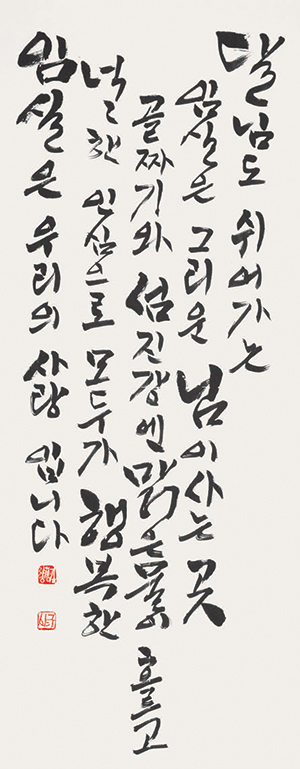 달님도 쉬어가는
임실은 그리운 님이 사는 곳
골짜기와 섬진강엔 맑은 물이 흐르고
넉넉한 인심으로 모두가 행복한
임실은 우리의 사랑 입니다